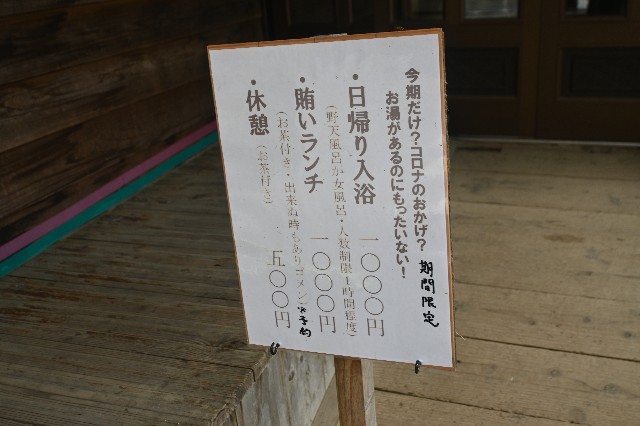 今期だけ?コロナのおかげ?
お湯があるのにもったいない!
期間限定
・日帰り入浴 一〇〇〇円
(野天風呂か女風呂・人数制限1時間程度)
・賄いランチ 一〇〇〇円
(お茶付き・出来ぬ時もありゴメン)※予約
・休憩 五〇〇円
(お茶付き)